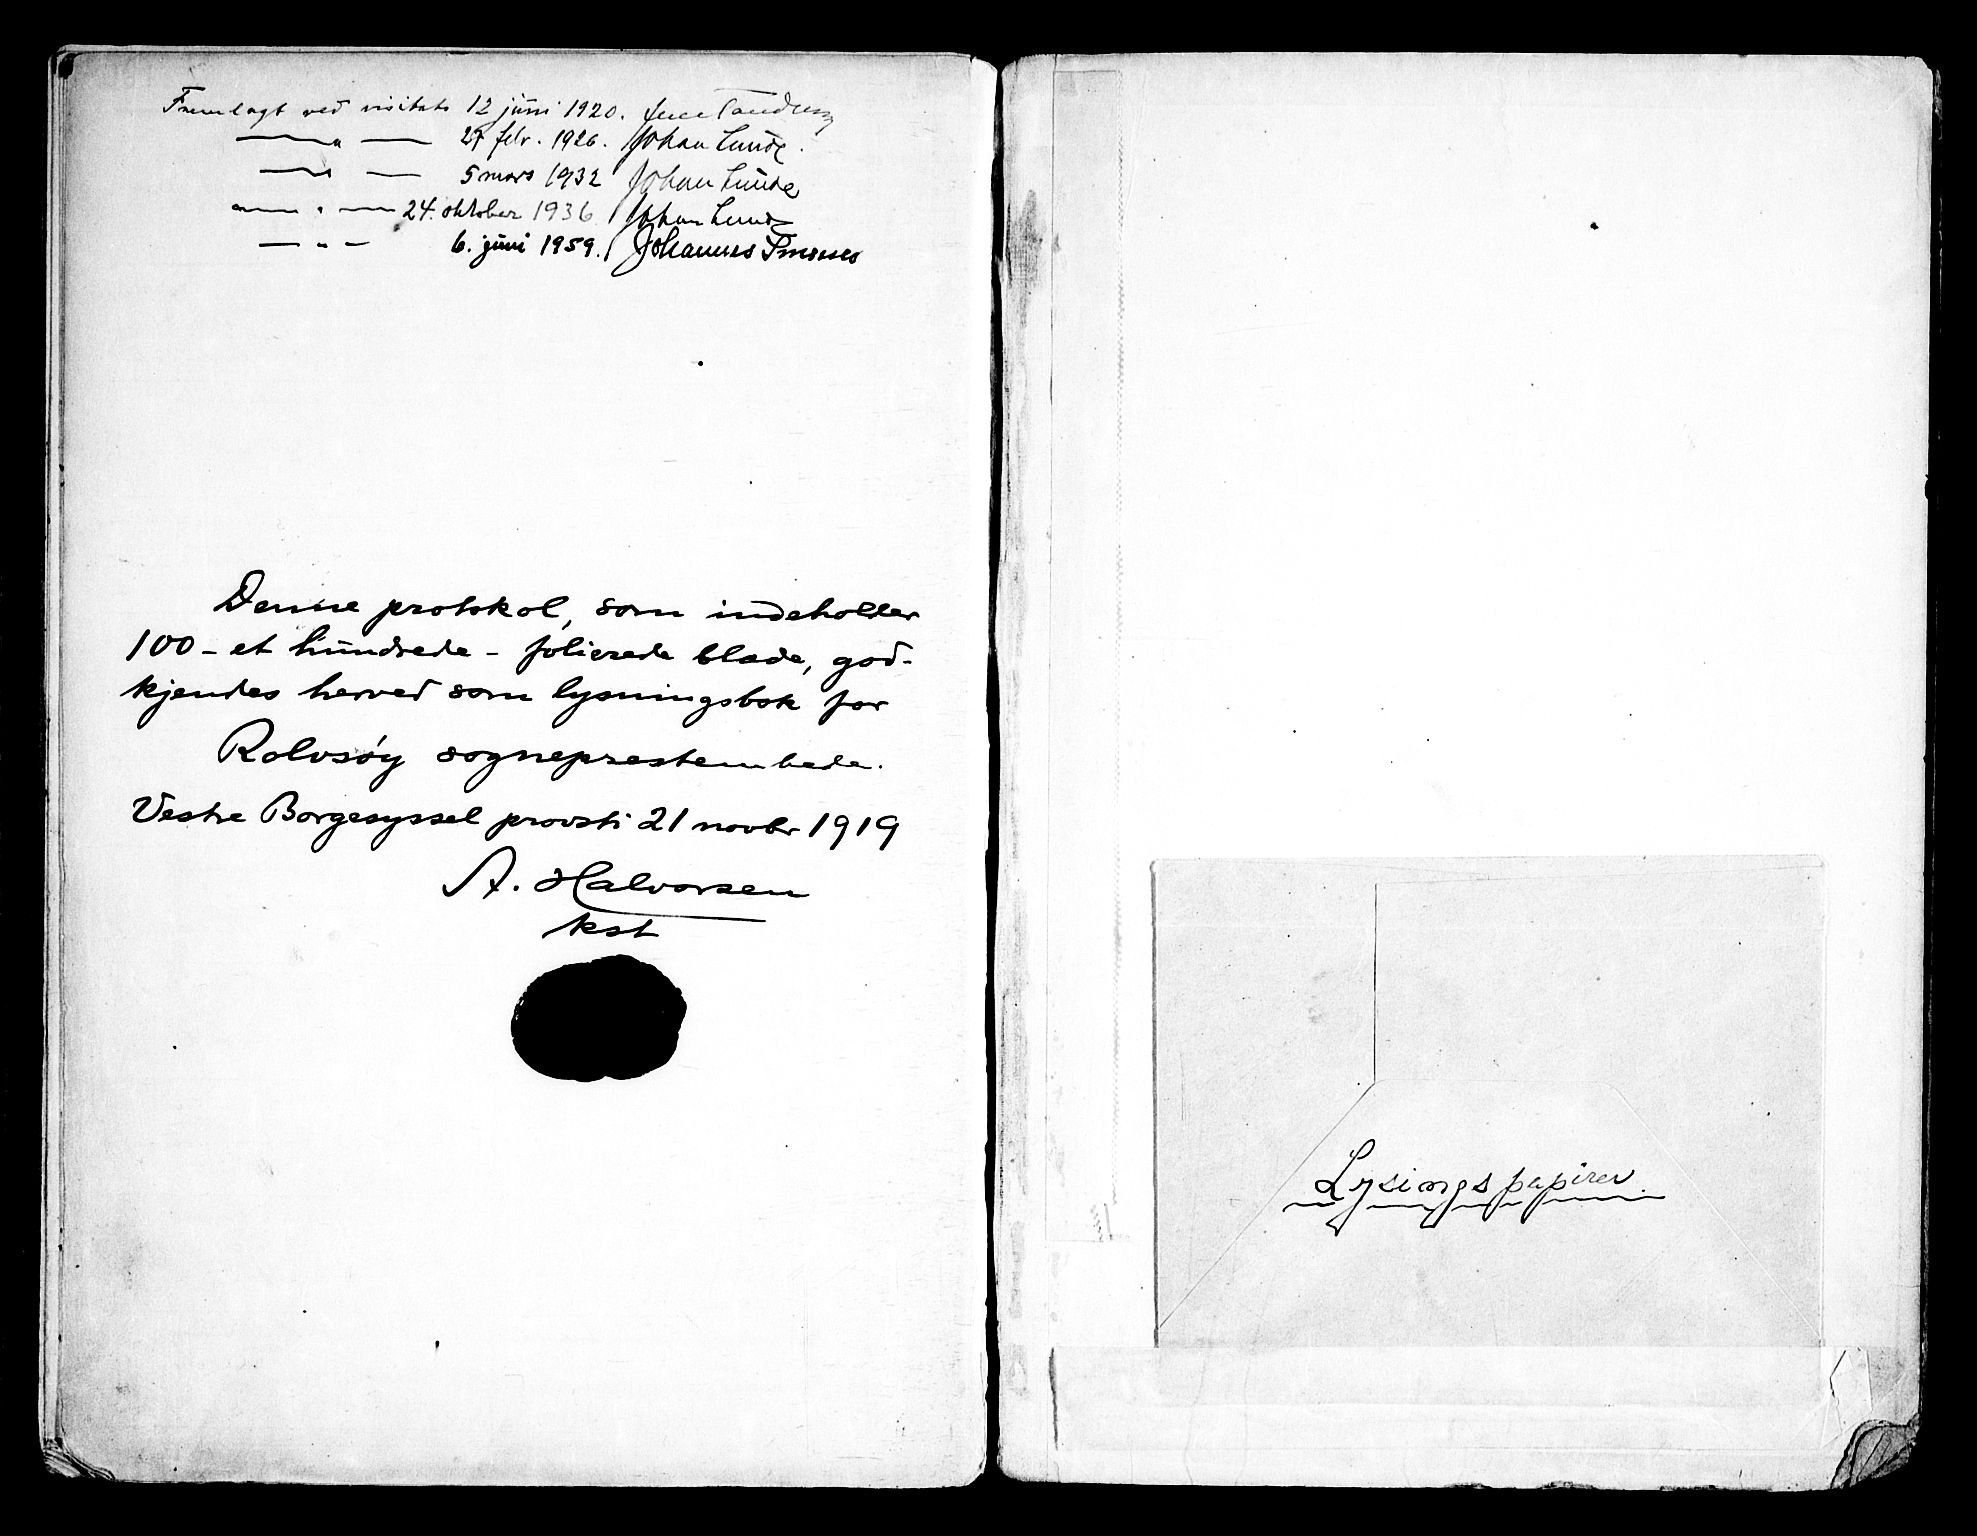 Fremlagt ved visitats 12 juni 1920. Jens Tandberg
— " — 27 febr. 1926. Johan Lunde.
— " — 5 mars 1932 Johan Lunde
— " — 24. oktober 1936 Johan Lunde
— " — 6. juni 1959. Johannes Smemo
Denne protokol, som indeholder
100 - et hundrede - folierede blade, god-
kjendes herved som lysningsbok for
Rolvsøy sogneprestembede.
Vestre Borgesyssel provsti 21 novbr 1919
A. Halvorsen
kst
Lysingspapirer.